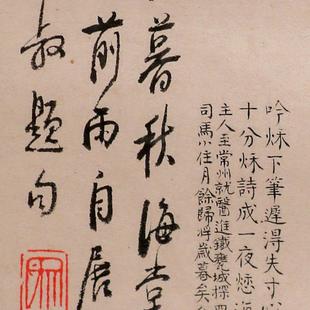 吟秌下筆遲得失寸
十分秌詩成一夜愁
主人至常州就醫進鐵甕城探
司馬小住月餘歸將歲暮矣
暮秋海棠
前雨自居
叔題句